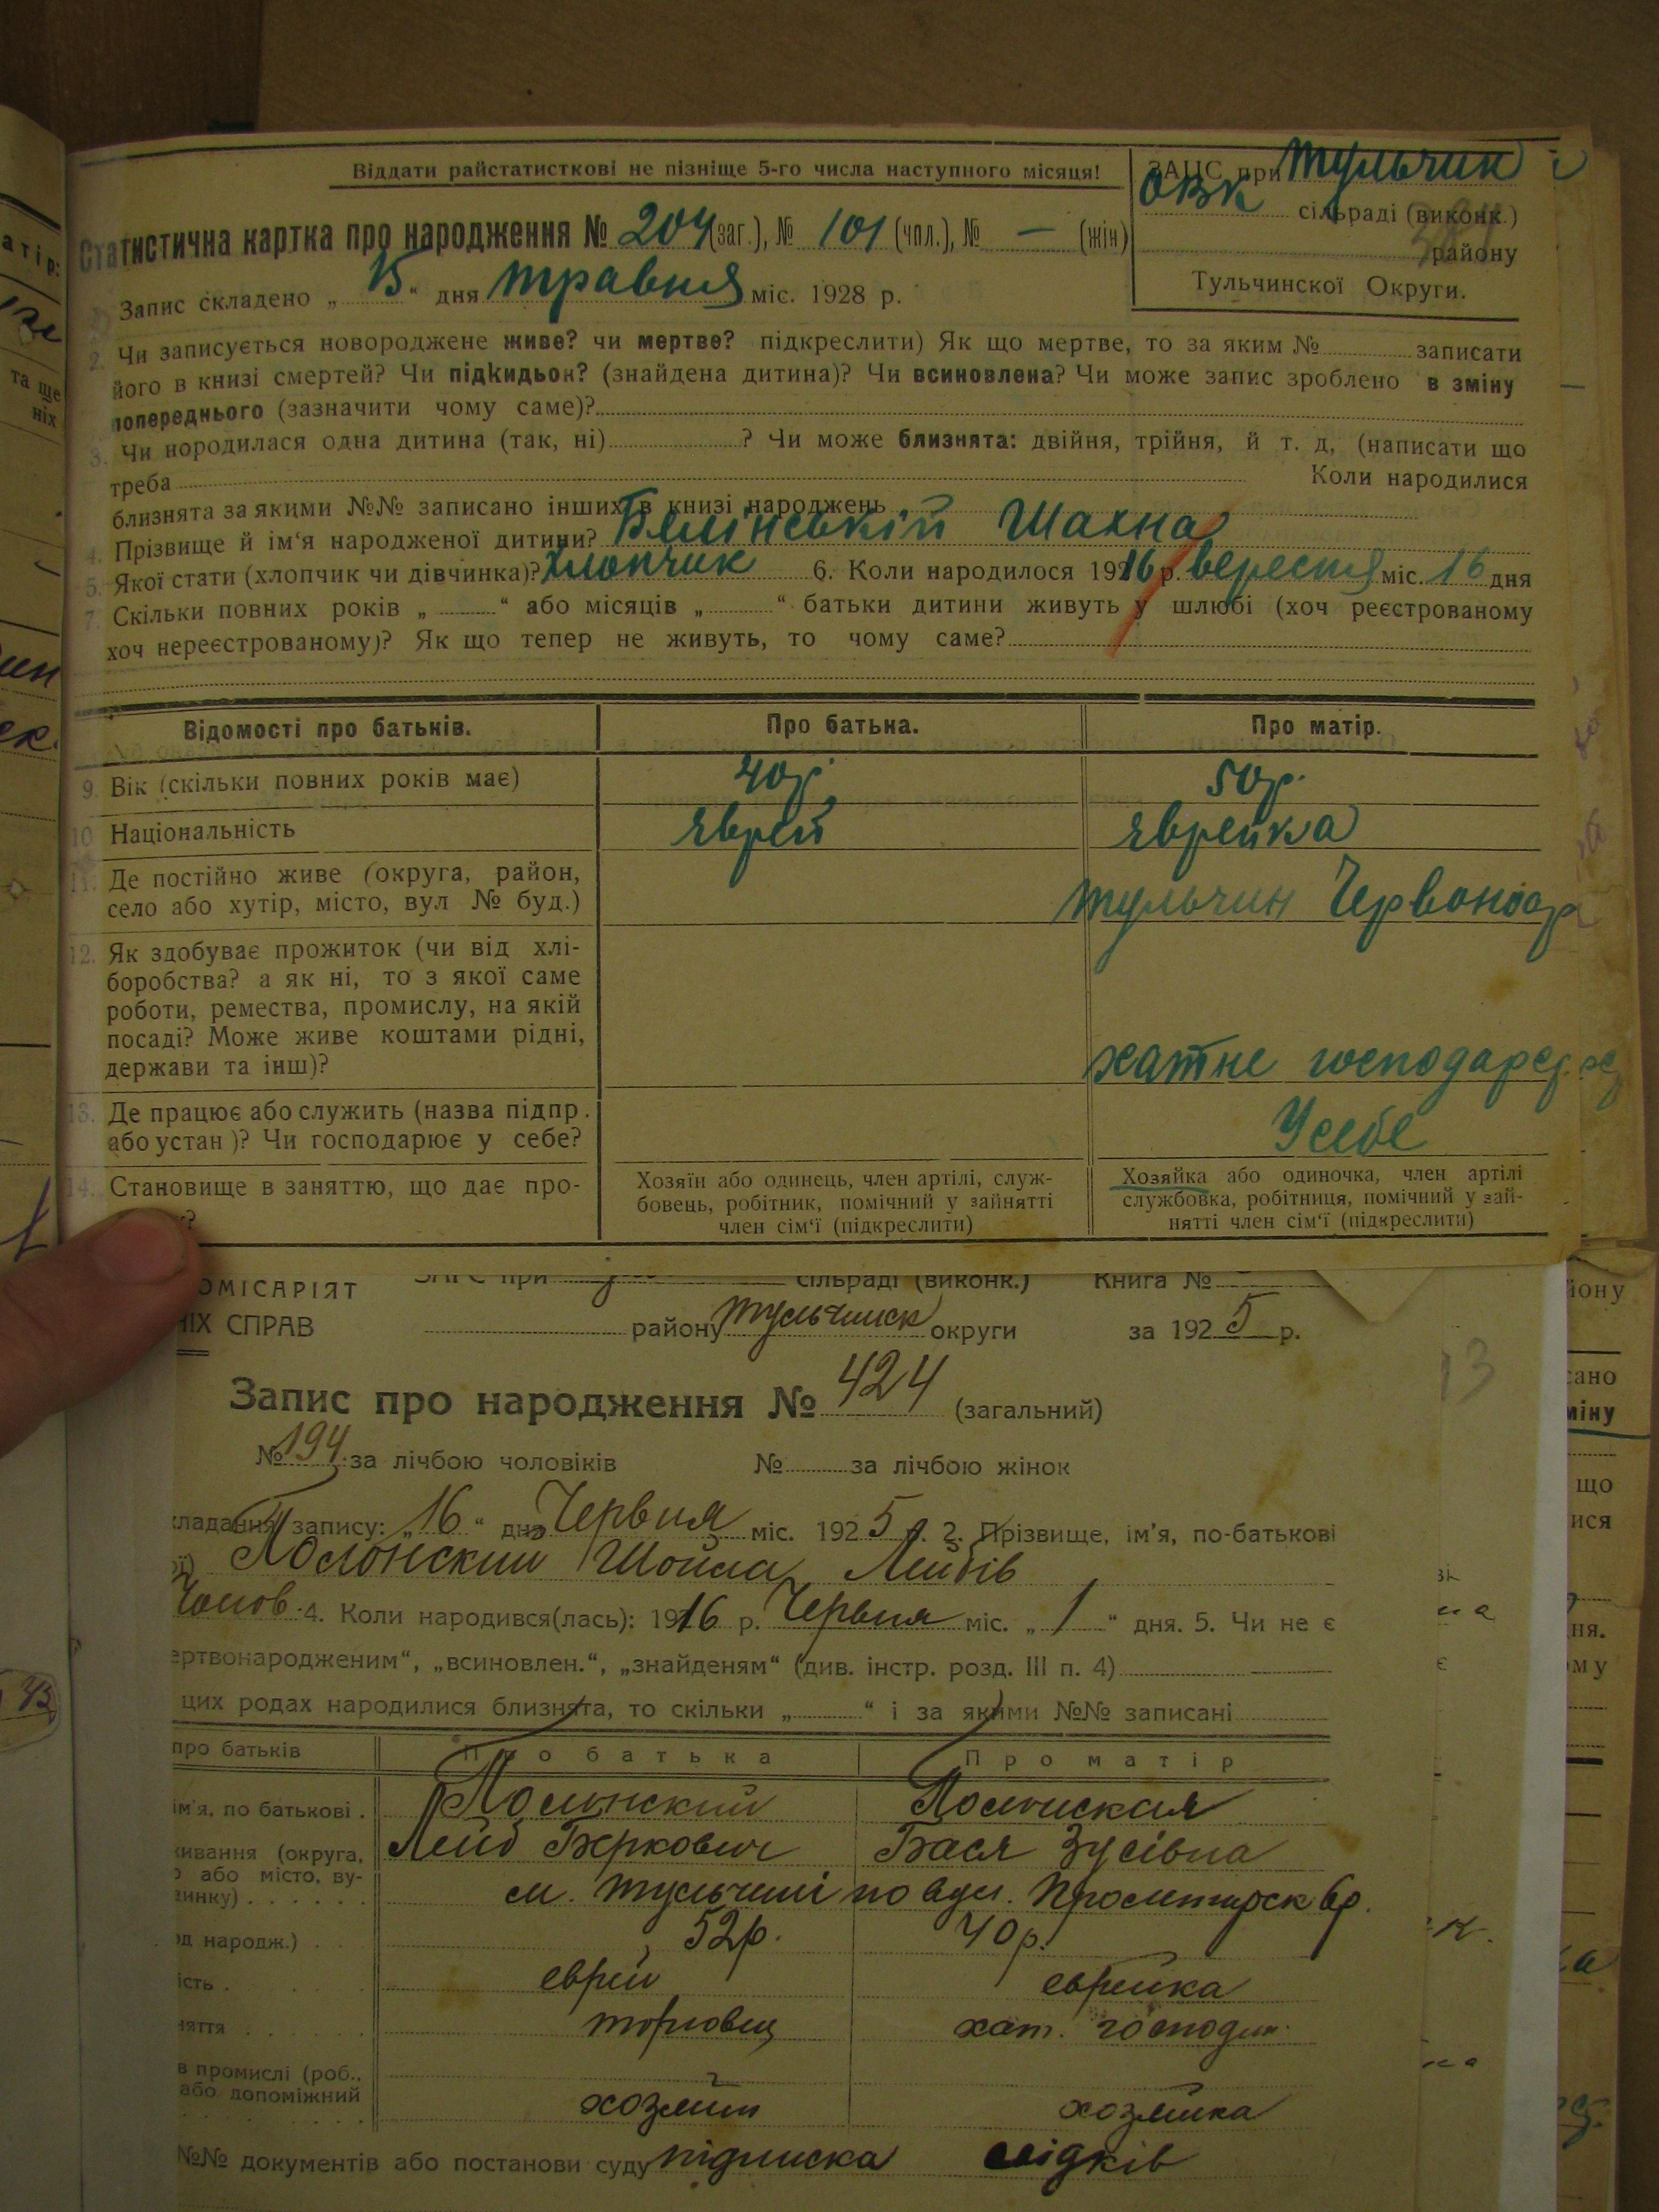 Віддати райстатисткові не пізніще 5-го числа наступного місяця!
ЗАЦС при Тульчин
ОВК сільраді (виконк.)
району
Тульчинскої Округи.
Статистична картка про народження № 204 (заг.), № 101 (чпл.), № — (жін)
Запис складено „ 15 “ дня травня міс. 1928 р.
2. Чи записується новороджене живе? чи мертве? підкреслити) Як що мертве, то за яким № записати
його в книзі смертей? Чи підкидьон? (знайдена дитина)? Чи всиновлена? Чи може запис зроблено в зміну
попереднього (зазначити чому саме)?
3. Чи нородилася одна дитина (так, ні) ? Чи може близнята: двійня, трійня, й т. д, (написати що
треба Коли народилися
близнята за якими №№ записано інших в книзі народжень
4. Прізвище й ім‘я народженої дитини? Белінській Шахна
5. Якої стати (хлопчик чи дівчинка)? Хлопчик 6. Коли народилося 1916 р. вересня міс. 16 дня
7. Скільки повних років „ “ або місяців „ “ батьки дитини живуть у шлюбі (хоч реєстрованому
хоч нереєстрованому)? Як що тепер не живуть, то чому саме?
Відомості про батьків. Про батька. Про матір.
9. Вік (скільки повних років має) 40р. 50р.
10 Національність яврей яврейка
11. Де постійно живе (округа, район,
село або хутір, місто, вул № буд.) Тульчин
12. Як здобуває прожиток (чи від хлі-
боробства? а як ні, то з якої саме
роботи, ремества, промислу, на якій
посаді? Може живе коштами рідні,
держави та інш)? хатне
13. Де працює або служить (назва підпр.
або устан)? Чи господарює у себе? У себе
14. Становище в заняттю, що дає про-
Хозяїн або одинець, член артілі, служ-
бовець, робітник, помічний у зайнятті
член сім‘ї (підкреслити)
Хозяйка або одиночка, член артілі
службовка, робітниця, помічний у зай-
нятті член сім‘ї (підкреслити)
ОМІСАРІЯТ ЗАГС при сільраді (виконк.) Книга №
НІХ СПРАВ району Тульчинск округи за 1925 р.
Запис про народження № 424 (загальний)
№ 194 за лічбою чоловіків № за лічбою жінок
кладання запису: „ 16 “ дня Червня міс. 1925 р. 2. Прізвище, ім’я, по-батькові
Полонский Шойла Лейбів
4. Коли народився(лась): 1916 р. Червня міс. „ 1 “ дня. 5. Чи не є
ертвонародженим“, „всиновлен.“, „знайденям“ (див. інстр. розд. III п. 4)
цих родах народилися близнята, то скільки „ “ і за якими №№ записані
про батьків Про батька Про матір
ім’я, по батькові . Полонский Полонская
Лейб Беркович Бася Зусівна
живання (округа,
або місто, ву-
м. Тульчині по вул.
д народж.) 52р. 40р.
ість . еврей еврейка
няття торговец хат. господин.
в промислі (роб.,
або допоміжний
хозяин хозяйка
№№ документів або постанови суду підписка свідків
13